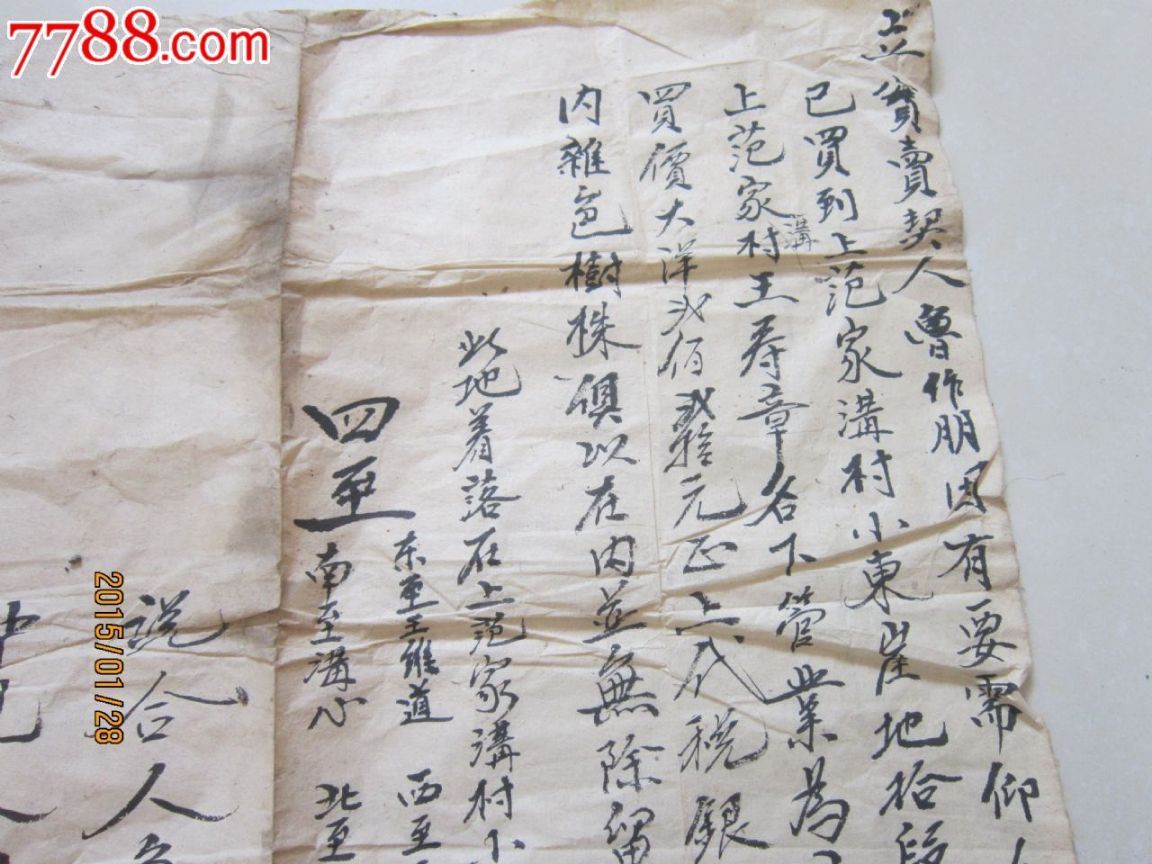 7788.com
立賣賣契人魯作朋因有要需仰
已買到上范家溝村小東崖地拾段
上范家溝村王寿章名下管业為
買價大洋弍佰弍拾元正上代税銀
内雜色樹株俱以在内並無除留
此地着落在上范家溝村小
四至
东至王維道 西至
南至溝心 北至
説合人
2015/01/28